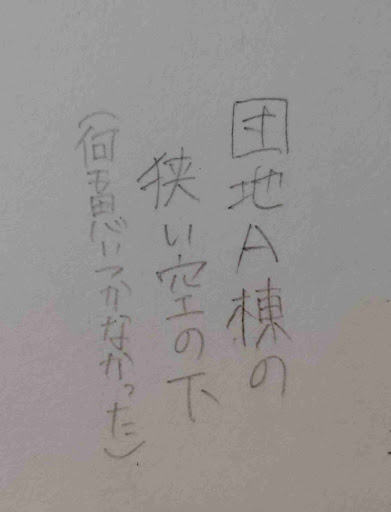 団地A棟の
狭い空の下
（何も思いつかなかった）